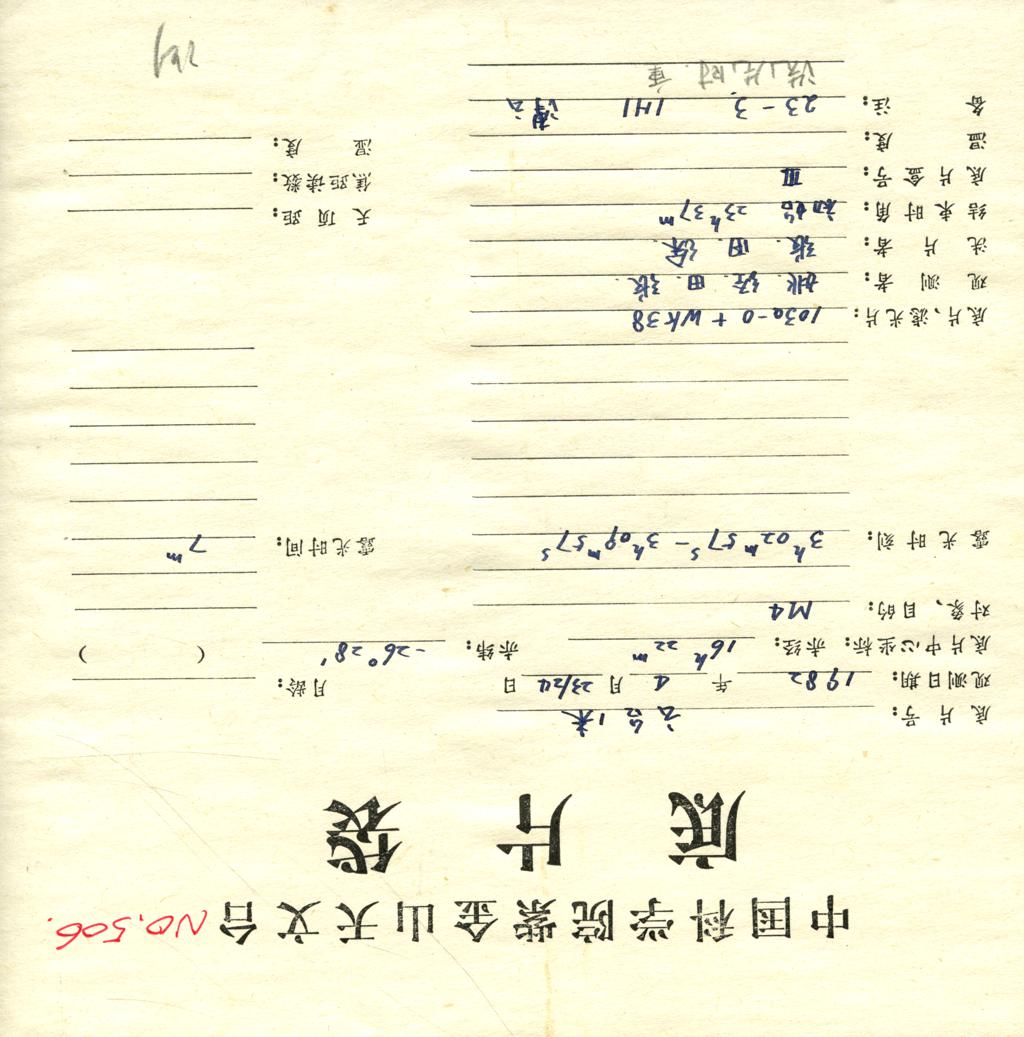 中国科学院紫金山天文台 NO.506.
底片袋
底片号: 云台1米
观测日期: 1982 年 4 月 23/24 日 月龄:
底片中心坐标: 赤经: 16h 22m 赤纬: -26°28′ ( )
对象、目的: M4
露光时刻: 3h02m57s - 3h09m57s 露光时间: 7m
底片、滤光片: 103a-O + WK38
观测者: 姚 经 田 张
洗片者: 张 田 徐
结束时角: 初始 23h37m 天顶距:
底片盒号: III 焦距读数:
温度: 湿度:
备注: 23-3 IHI
洗片时